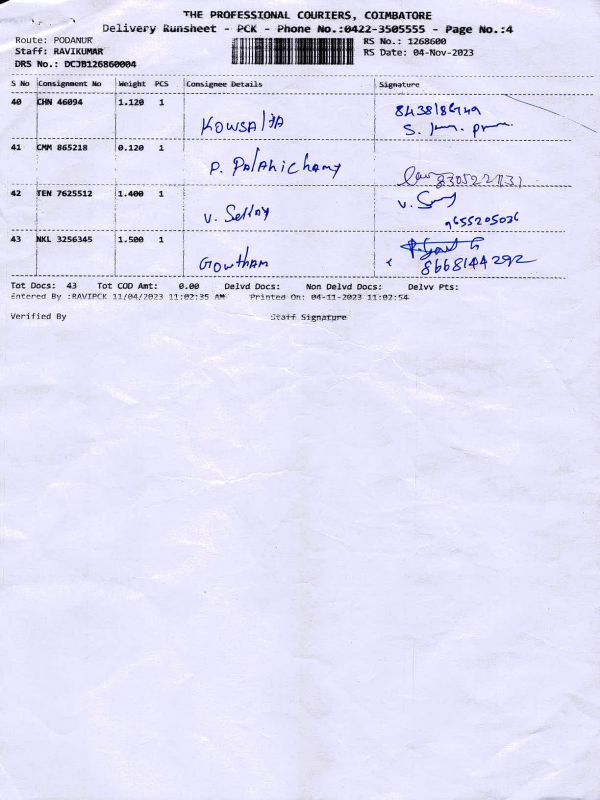 THE PROFESSIONAL COURIERS, COIMBATORE
Delivery Runsheet - PCK - Phone No.:0422-3505555 - Page No.:4
Route: PODANUR
RS No.: 1268600
Staff: RAVIKUMAR
RS Date: 04-Nov-2023
DRS No.: DCJB126860004
S No Consignment No Weight PCS Consignee Details Signature
40 CHN 46094 1.120 1
KOWSALYA
41 CMM 865218 0.120 1
P. Palanichamy
42 TEN 7625512 1.400 1
V. Selvay V.
9655205036
43 NKL 3256345 1.500 1
Gowtham
8668144292
Tot Docs: 43 Tot COD Amt: 0.00 Delvd Docs: Non Delvd Docs: Delvv Pts:
Entered By :RAVIPCK 11/04/2023 11:02:35 AM Printed On: 04-11-2023 11:02:54
Verified By Staff Signature